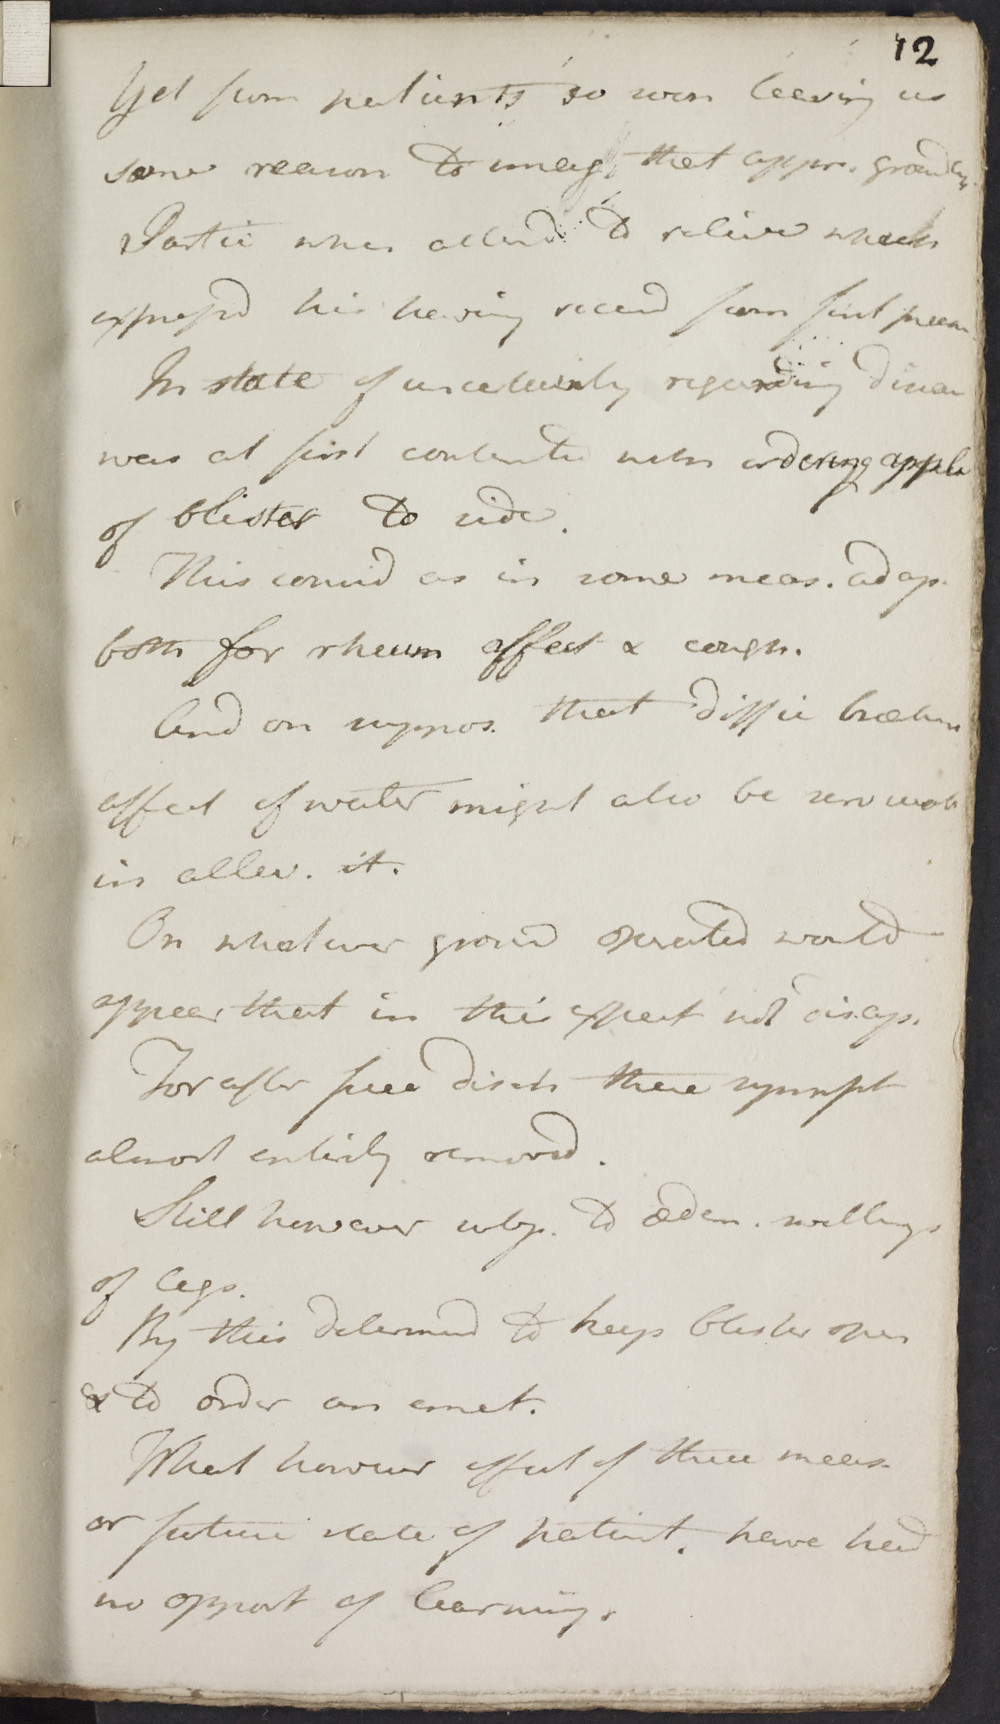 12
Yet from patients so soon leaving us
some reason to imag. that appr. groundless
Partic when attend to relief which
express'd his having receivd from first prescr
In state of uncertainty regarding disease
was at first contented with ordering applic
of blister to side.
This consid as in some meas. adap.
both for rheum affect & cough.
And on suppos. that diffic breathing
affect of water might also be serviceab
in allev. it.
On whatever ground operated would
appear that in this expect not disap.
For after free disch these sympt
almost entirely removed.
Still however subj. to œdem. swellings
of legs.
By this determined to keep blister open
& to order an emet.
What however effect of these meas.
or future state of patient. have had
no opport of learning.